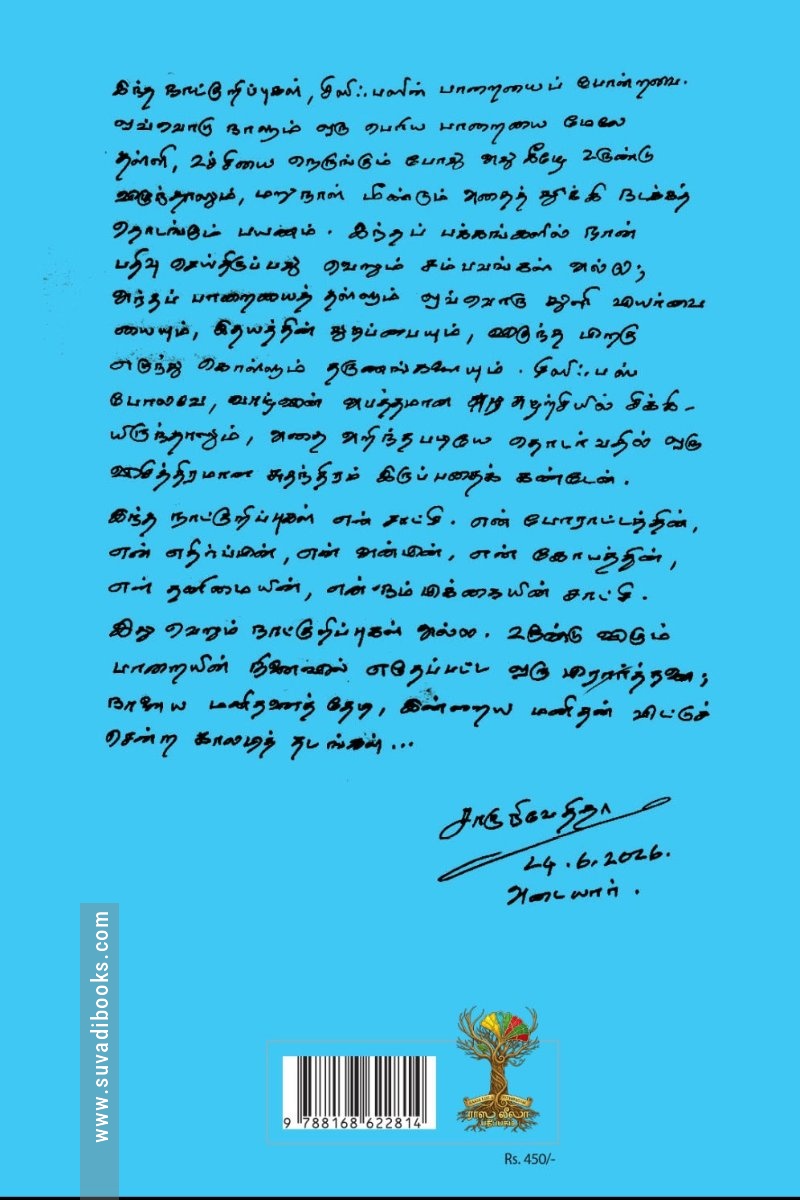 இந்த நாட்குறிப்புகள், சிஸிஃபஸின் பாறையைப் போன்றவை.
ஒவ்வொரு நாளும் ஒரு பெரிய பாறையை மேலே
தள்ளி, உச்சியை நெருங்கும் போது அது கீழே உருண்டு
விழுந்தாலும், மறுநாள் மீண்டும் அதைத் தூக்கி நடக்கத்
தொடங்கும் பயணம். இந்தப் பக்கங்களில் நான்
பதிவு செய்திருப்பது வெறும் சம்பவங்கள் அல்ல;
அந்தப் பாறையைத் தள்ளும் ஒவ்வொரு துளி வியர்வை
யையும், இதயத்தின் துடிப்பையும், விழுந்த பிறகு
எழுந்து கொள்ளும் தருணங்களையும். சிஸிஃபஸ்
போலவே, வாழ்வின் அபத்தமான சுழற்சியில் சிக்கி-
யிருந்தாலும், அதை அறிந்தபடியே தொடர்வதில் ஒரு
விசித்திரமான சுதந்திரம் இருப்பதைக் கண்டேன்.
இந்த நாட்குறிப்புகள் என் சாட்சி. என் போராட்டத்தின்,
என் எதிர்ப்பின், என் அன்பின், என் கோபத்தின்,
என் தனிமையின், என் நம்பிக்கையின் சாட்சி.
இது வெறும் நாட்குறிப்புகள் அல்ல. உருண்டு விடும்
பாறையின் நிழலில் எழுதப்பட்ட ஒரு பிரார்த்தனை;
நாளைய மனிதனைத் தேடி, இன்றைய மனிதன் விட்டுச்
சென்ற காலடித் தடங்கள்...
சாரு நிவேதிதா
24.6.2026.
அடையார்.
www.suvadibooks.com
9 788168 622814
ராஸ லீலா
பதிப்பகம்
Rs. 450/-